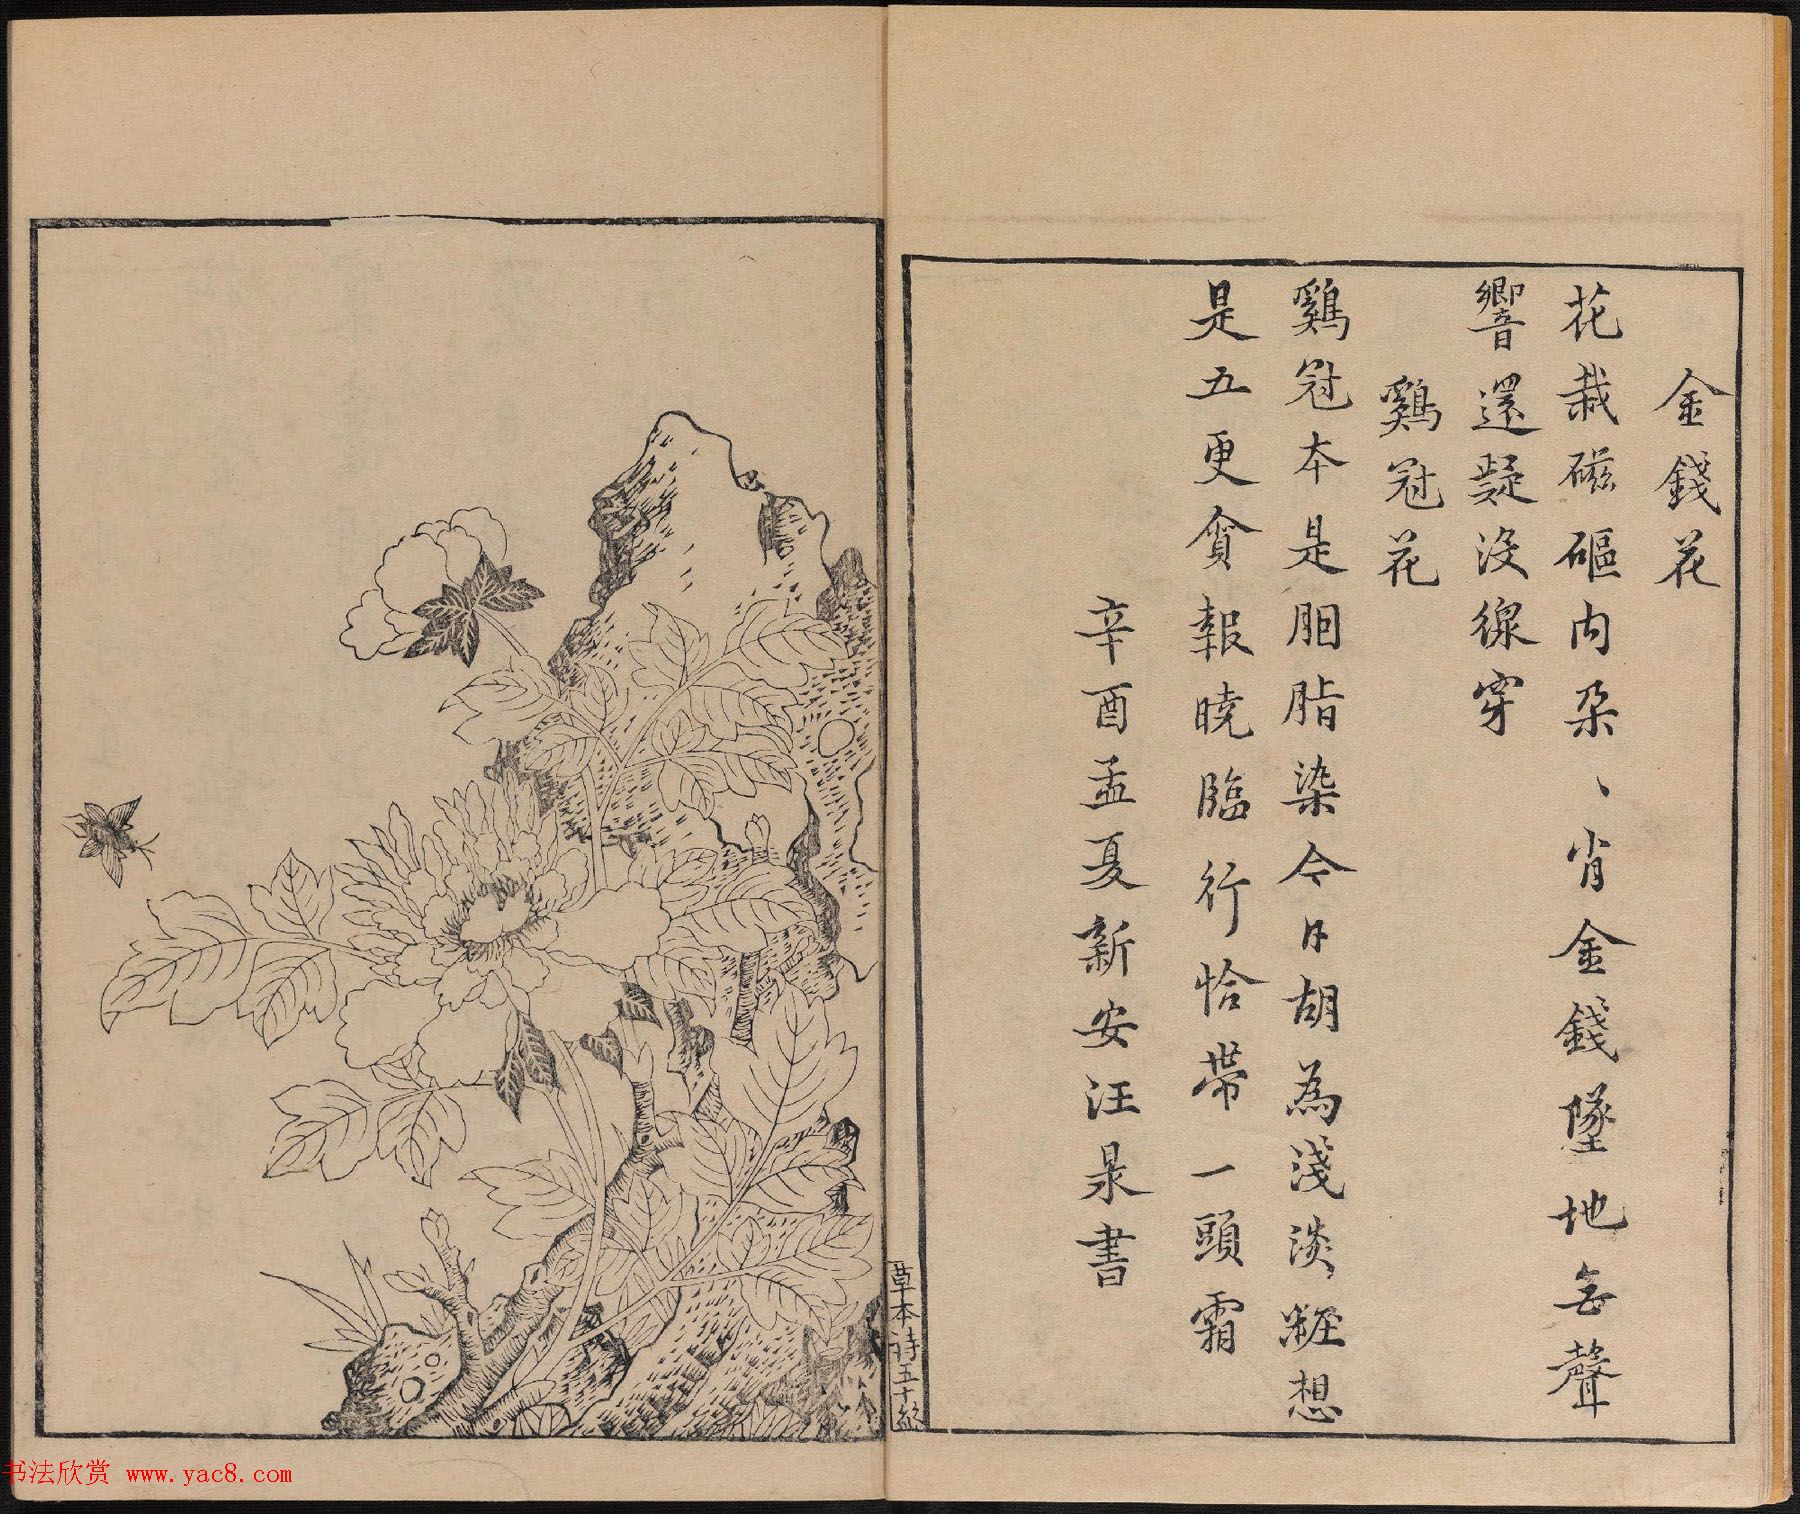 金錢花
花栽磁甌内朵〻肖金錢墜地無聲
響還疑沒線穿
鷄冠花
鷄冠本是胭脂染今日胡為淺淡粧想
是五更貪報曉臨行恰帶一頭霜
辛酉孟夏新安汪杲書
草本詩五十絶
书法欣赏 www.yac8.com